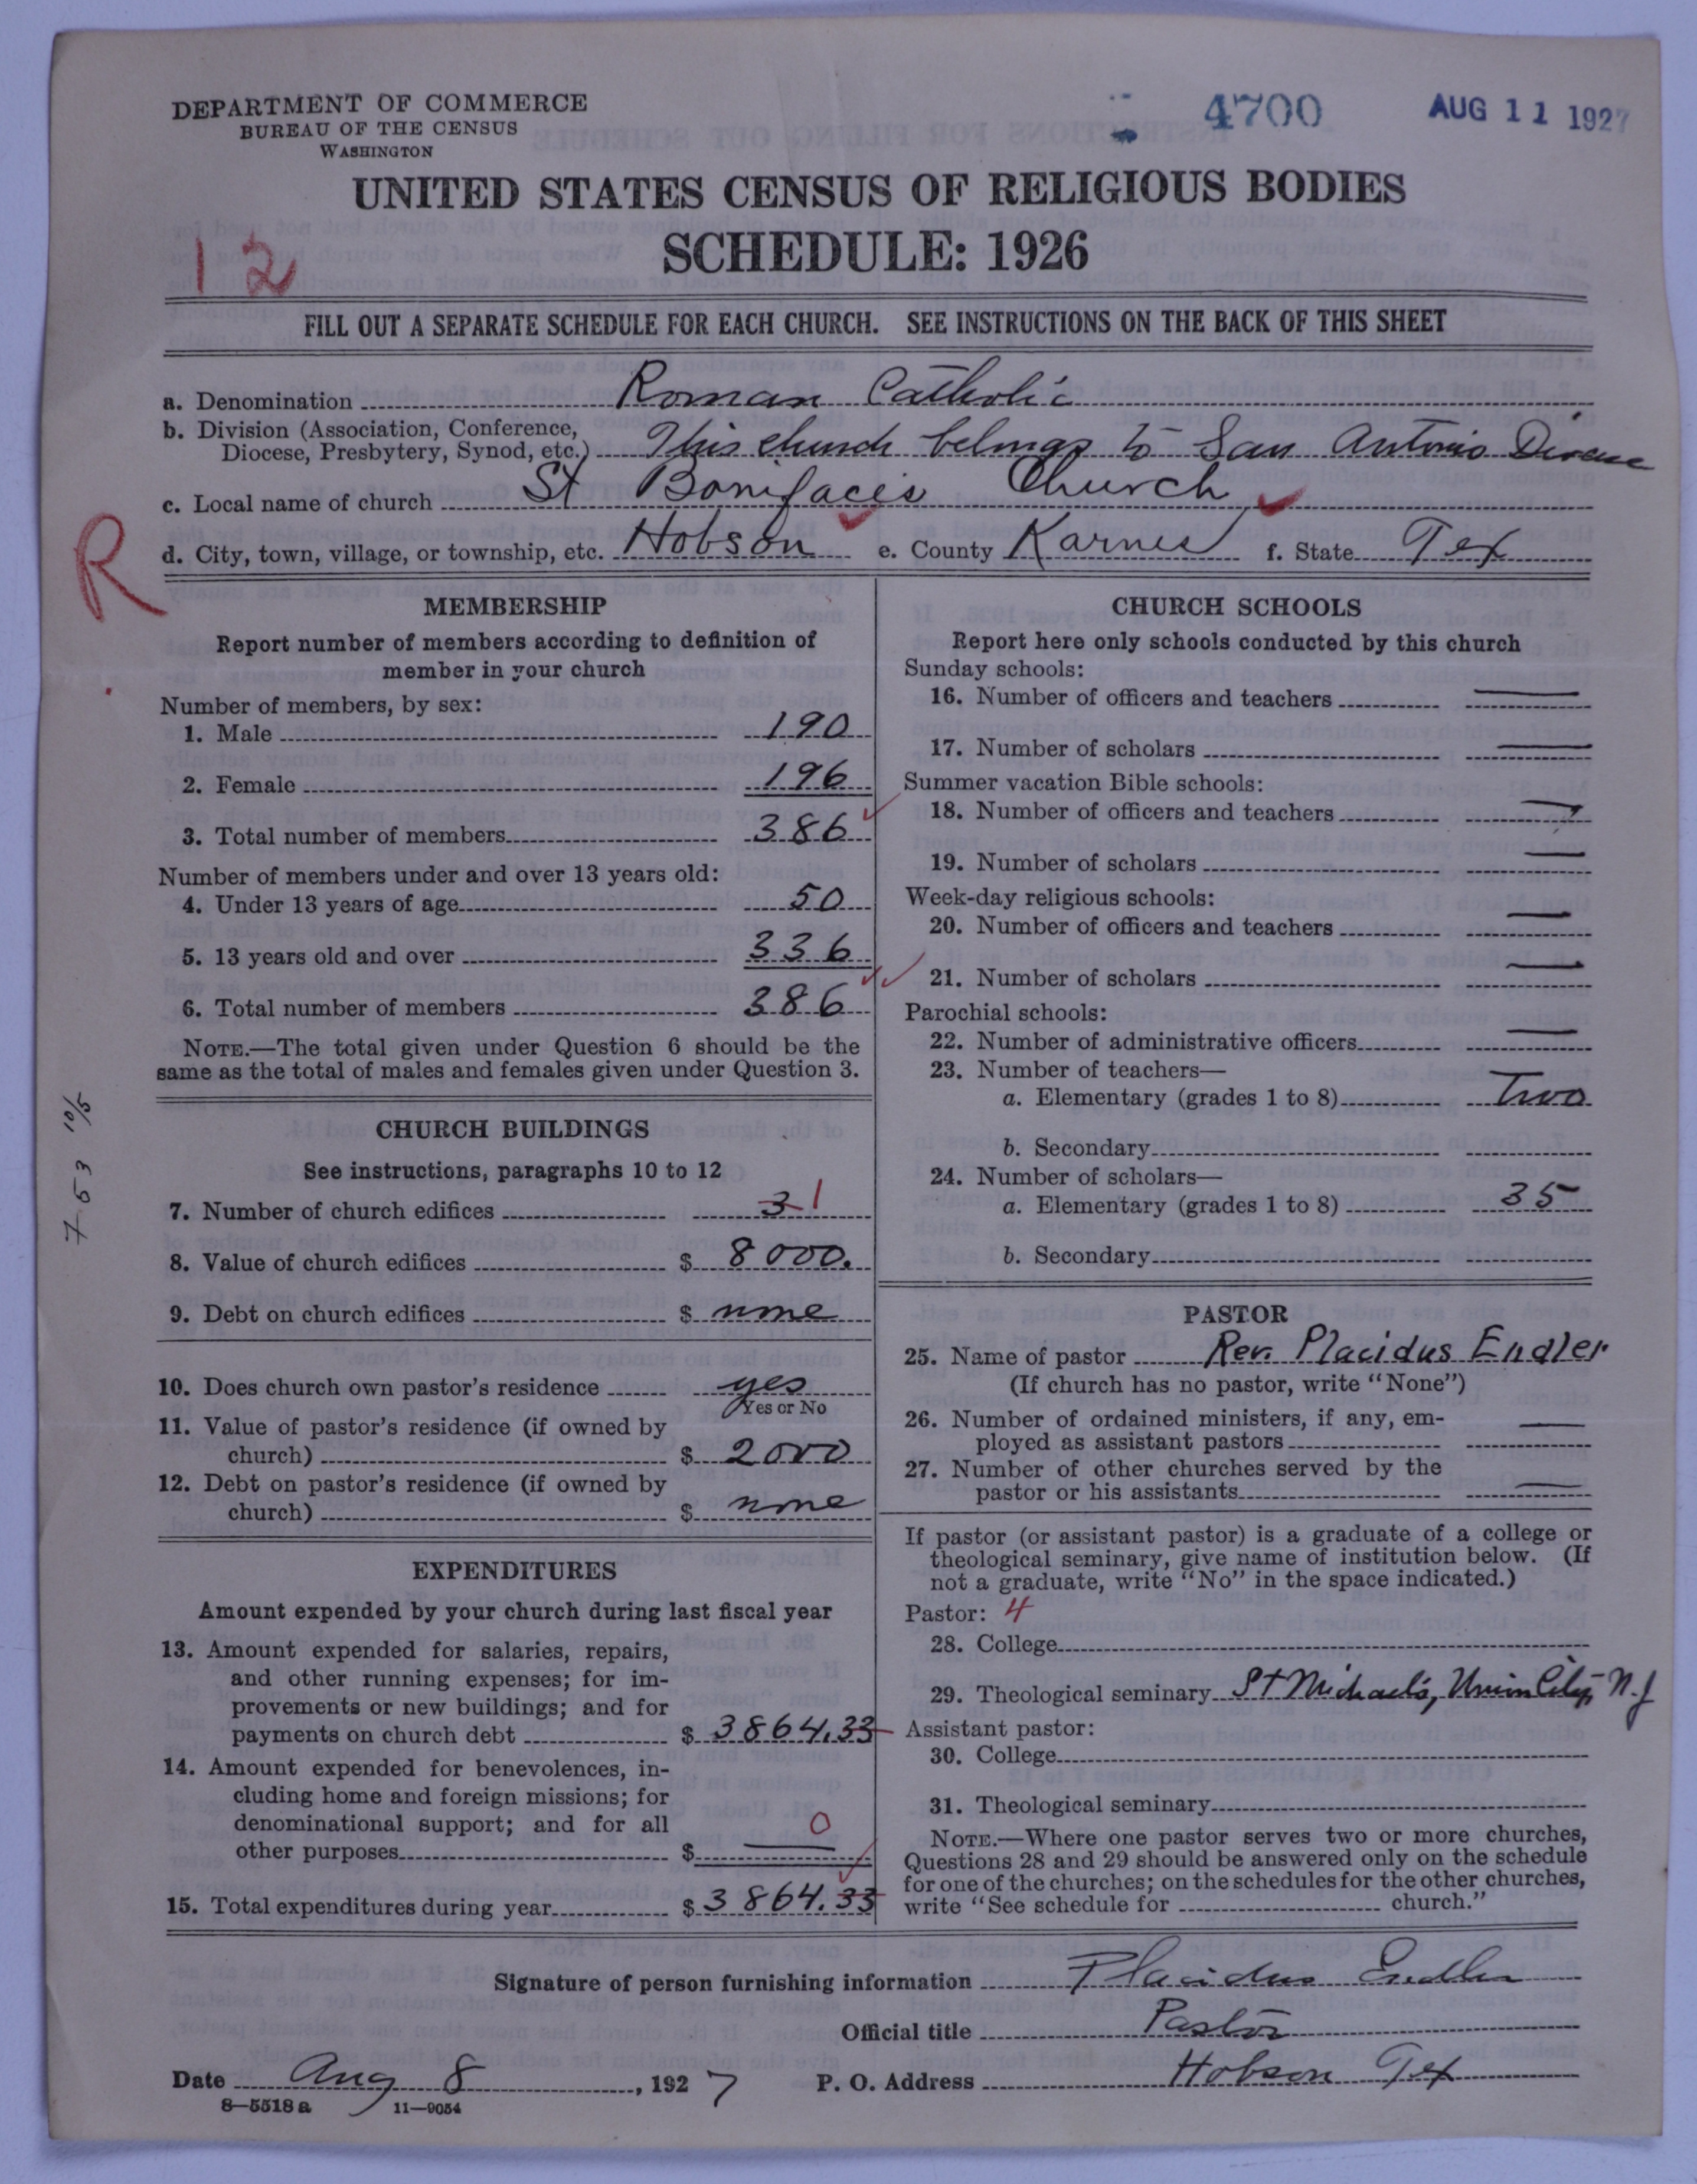 DEPARTMENT OF COMMERCE
BUREAU OF THE CENSUS
WASHINGTON
4700
AUG 11 1927
UNITED STATES CENSUS OF RELIGIOUS BODIES
SCHEDULE: 1926
12
FILL OUT A SEPARATE SCHEDULE FOR EACH CHURCH. SEE INSTRUCTIONS ON THE BACK OF THIS SHEET
a. Denomination Roman Catholic
b. Division (Association, Conference,
Diocese, Presbytery, Synod, etc.) This church belongs to San Antonio Diocese
c. Local name of church St Bonifacis Church
R
d. City, town, village, or township, etc. Hobson e. County Karnes f. State Tex
MEMBERSHIP
Report number of members according to definition of
member in your church
Number of members, by sex:
1. Male 190
2. Female 196
3. Total number of members 386
Number of members under and over 13 years old:
4. Under 13 years of age 50
5. 13 years old and over 336
6. Total number of members 386
NOTE.—The total given under Question 6 should be the
same as the total of males and females given under Question 3.
753 10/5
CHURCH BUILDINGS
See instructions, paragraphs 10 to 12
7. Number of church edifices 3 1
8. Value of church edifices $ 8000.
9. Debt on church edifices $ none
10. Does church own pastor's residence yes
Yes or No
11. Value of pastor's residence (if owned by
church) $ 2000
12. Debt on pastor's residence (if owned by
church) $ none
EXPENDITURES
Amount expended by your church during last fiscal year
13. Amount expended for salaries, repairs,
and other running expenses; for im-
provements or new buildings; and for
payments on church debt $ 3864.33
14. Amount expended for benevolences, in-
cluding home and foreign missions; for
denominational support; and for all
other purposes $ — 0
15. Total expenditures during year $ 3864.33
CHURCH SCHOOLS
Report here only schools conducted by this church
Sunday schools:
16. Number of officers and teachers —
17. Number of scholars —
Summer vacation Bible schools:
18. Number of officers and teachers —
19. Number of scholars —
Week-day religious schools:
20. Number of officers and teachers —
21. Number of scholars —
Parochial schools:
22. Number of administrative officers —
23. Number of teachers—
a. Elementary (grades 1 to 8) Two
b. Secondary
24. Number of scholars—
a. Elementary (grades 1 to 8) 35
b. Secondary
PASTOR
25. Name of pastor Rev. Placidus Endler
(If church has no pastor, write "None")
26. Number of ordained ministers, if any, em-
ployed as assistant pastors —
27. Number of other churches served by the
pastor or his assistants —
If pastor (or assistant pastor) is a graduate of a college or
theological seminary, give name of institution below. (If
not a graduate, write "No" in the space indicated.)
Pastor: 4
28. College
29. Theological seminary St Michael's, Union City, N.J
Assistant pastor:
30. College
31. Theological seminary
NOTE.—Where one pastor serves two or more churches,
Questions 28 and 29 should be answered only on the schedule
for one of the churches; on the schedules for the other churches,
write "See schedule for church."
Signature of person furnishing information Placidus Endler
Official title Pastor
Date Aug 8, 1927 P. O. Address Hobson Tex
8—5518 a 11—9054